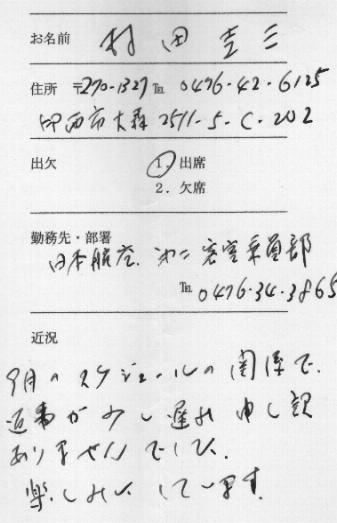 お名前 村田圭三
住所 〒270-1327 ℡ 0476-42-6125
印西市大森2511-5-C-202
出欠 1. 出席
2. 欠席
勤務先・部署
日本航空 第二客室乗員部
℡ 0476-34-3865
近況
9月のスケジュールの関係で、
返事が少し遅れ申し訳
ありませんでした。
楽しみにしています。